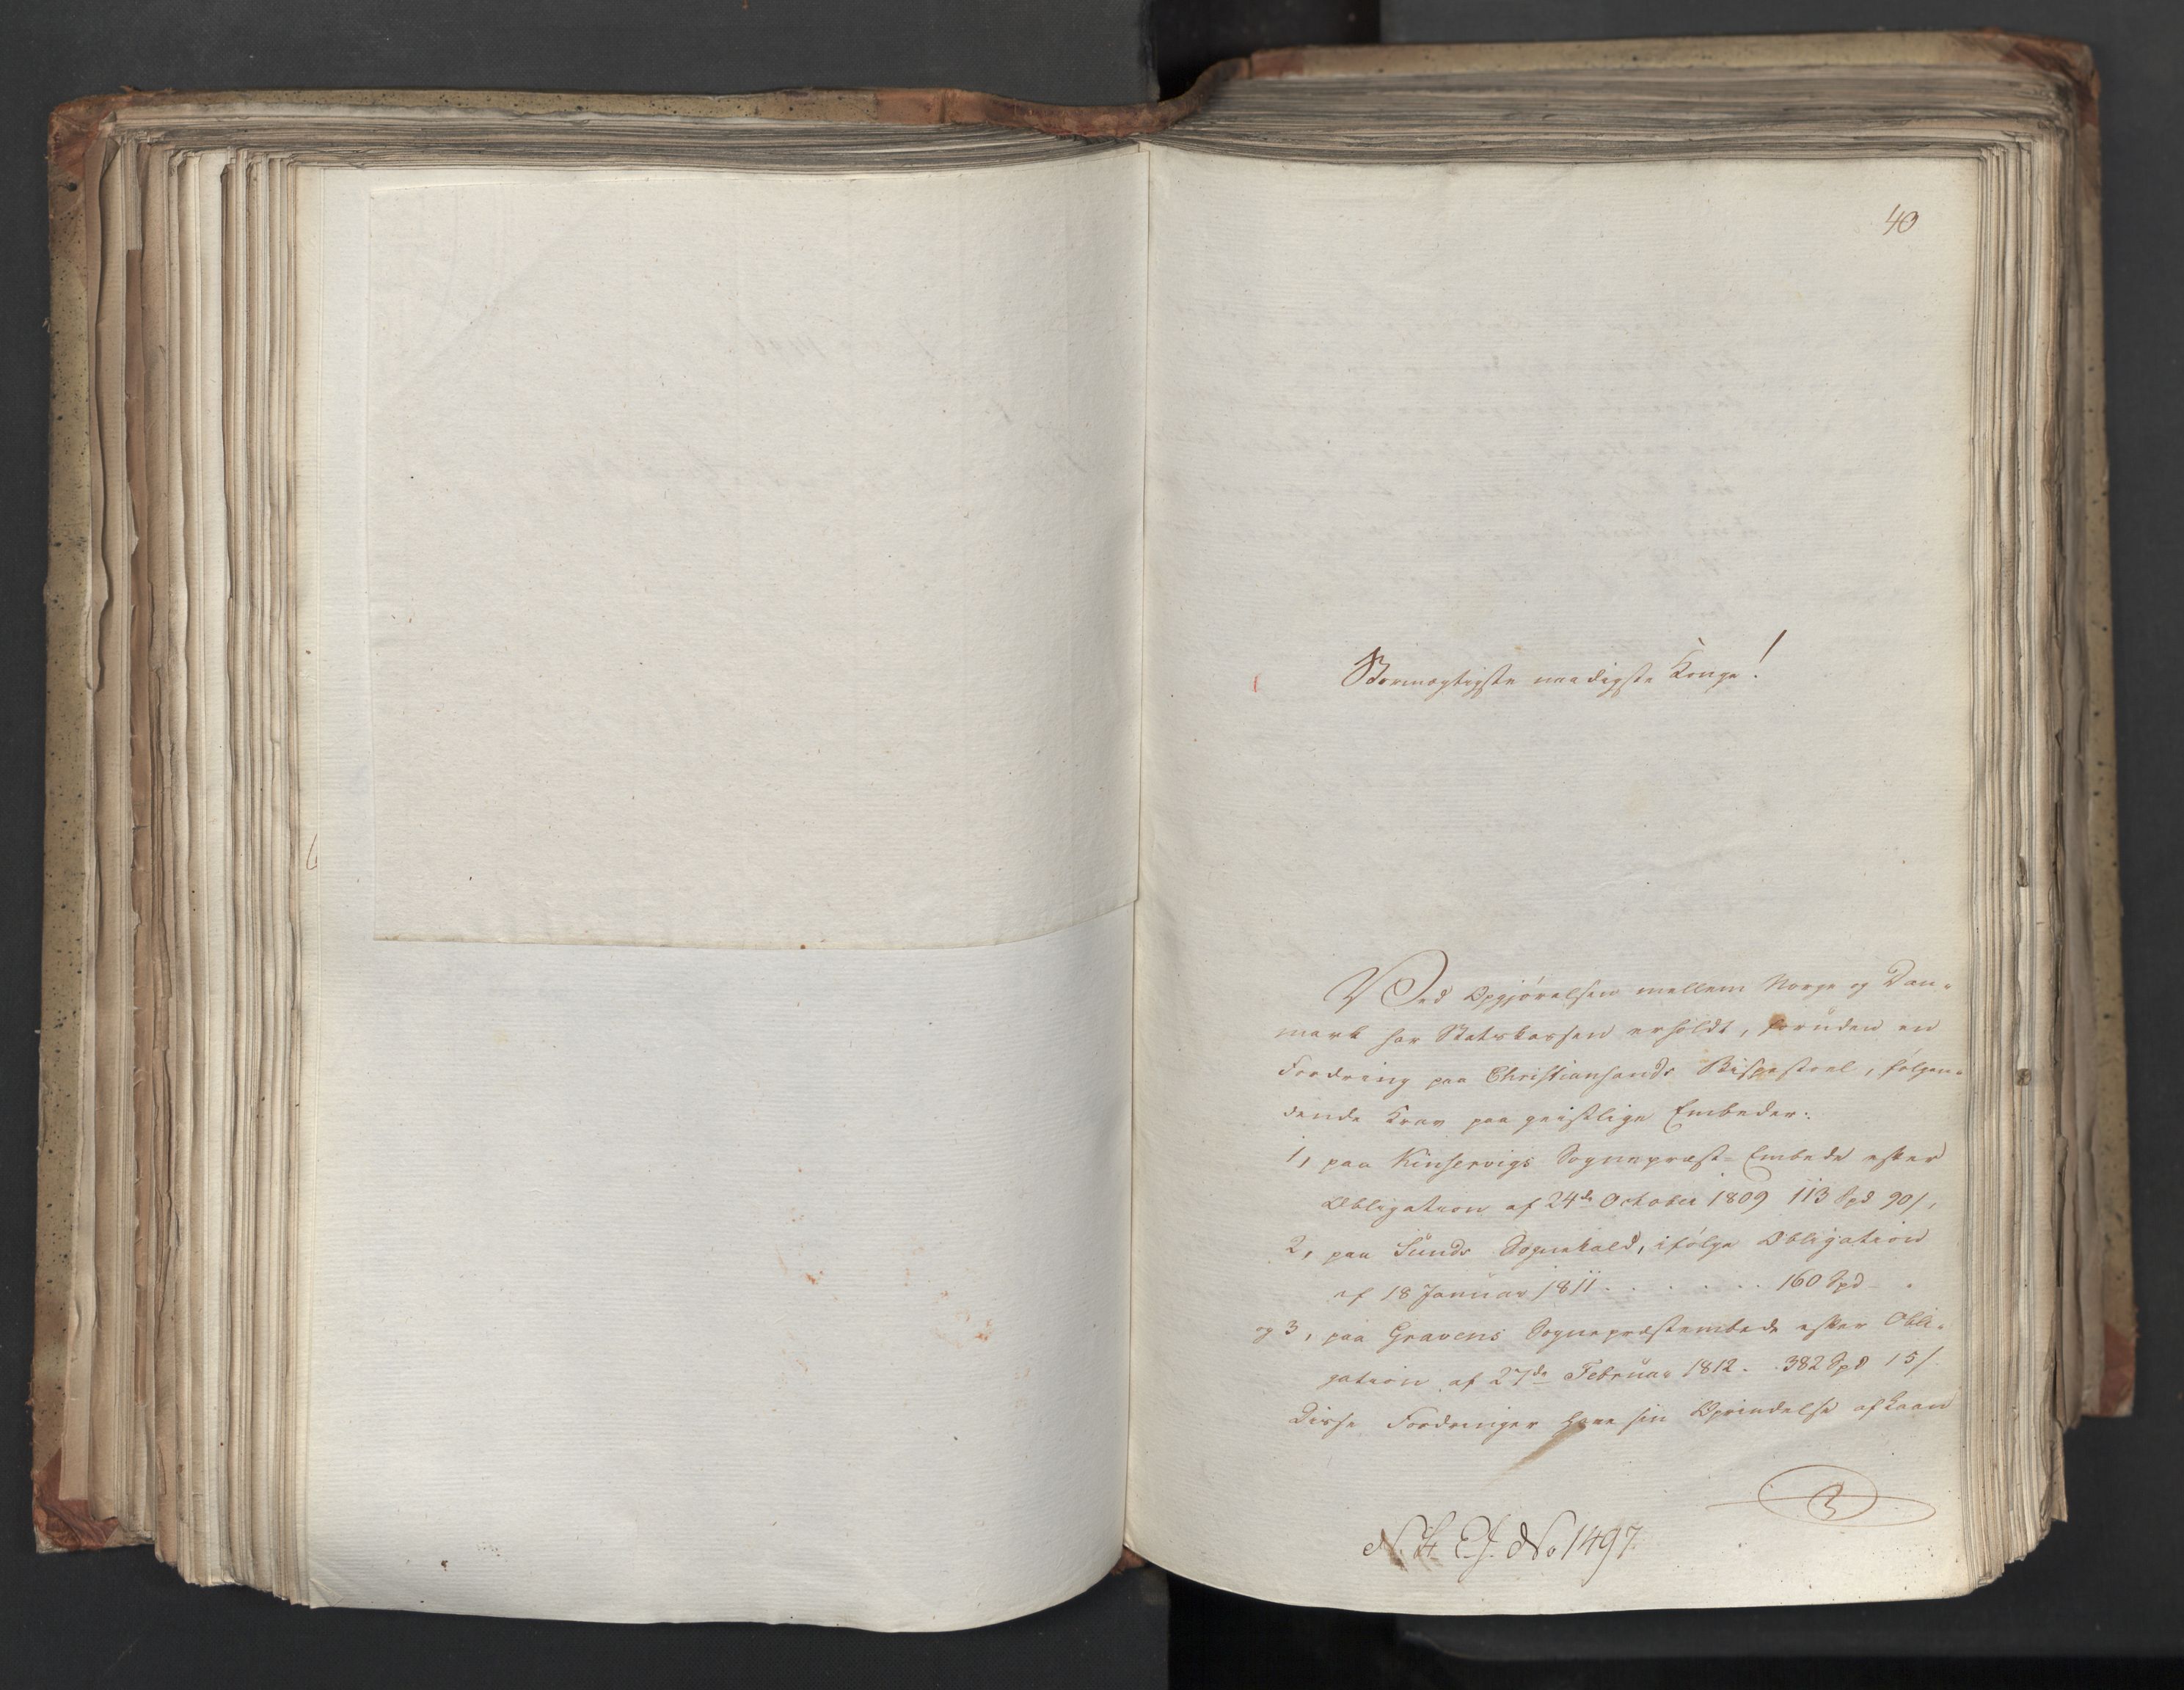 40
Stormægtigste naadigste Konge!
Ved Opgjørelsen mellem Norge og Dan-
mark har Statskassen erholdt, foruden en
Fordring paa Christiansands Bispestoel, følgen-
dende Krav paa geistlige Embeder:
1, paa Kinservigs Sognepræst-Embede efter
Obligation af 24de October 1809 113 Spd 90/,
2, paa Sunds Sognekald, ifølge Obligation
af 18 Januar 1811 . . . . . . . 160 Spd - "
og 3, paa Gravens Sognepræstembede efter Obli-
gation af 27de Februar 1812 . . 382 Spd 15/.
Disse Fordringer have sin Oprindelse af Laan
N. St. E. J. No 1497.